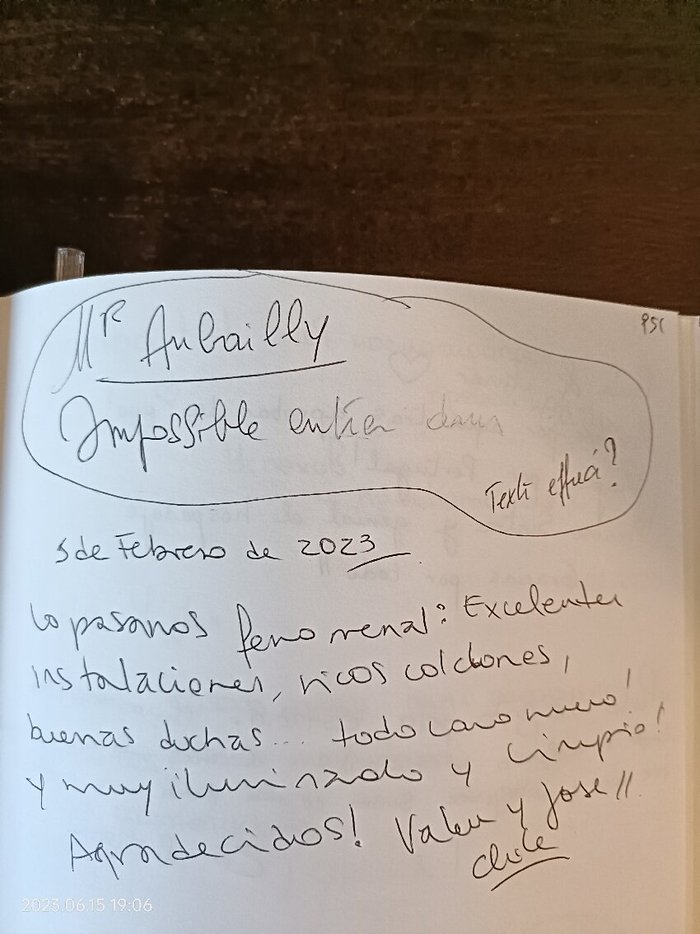 PSC
Mr Aubailly
Impossible entrer dans
Texte effacé?
5 de Febrero de 2023
Lo pasamos fenomenal: Excelentes
instalaciones, ricos colchones,
buenas duchas... todo como nuevo!
y muy iluminado y limpio!
Agradecidos! Valeu y Jose //
Chile
2023.06.15 19:06